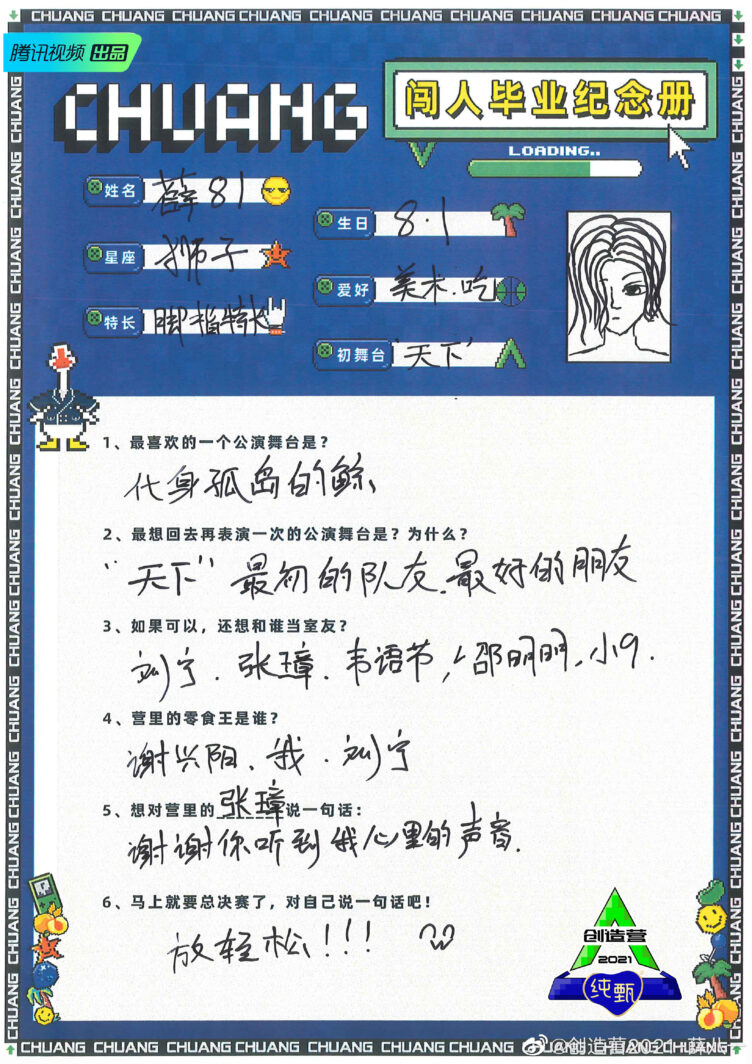 CHUANG CHUANG CHUANG CHUANG CHUANG CHUANG CHUANG CHUANG CHUANG CHUANG
腾讯视频 出品
CHUANG
闯人毕业纪念册
LOADING..
姓名 薛81
生日 8.1
星座 狮子
爱好 美术.吃
特长 脚指特长
初舞台 "天下"
1、最喜欢的一个公演舞台是？
化身孤岛的鲸
2、最想回去再表演一次的公演舞台是？为什么？
"天下" 最初的队友.最好的朋友
3、如果可以，还想和谁当室友？
刘宁.张璋.韦语节,邵明明,小9.
4、营里的零食王是谁？
谢兴阳、我.刘宁
5、想对营里的张璋说一句话：
谢谢你听到我心里的声音.
6、马上就要总决赛了，对自己说一句话吧！
放轻松!!!
创造营
2021
纯甄
CHUANG CHUANG CHUANG CHUANG CHUANG CHUANG CHUANG
@创造营2021-薛八一